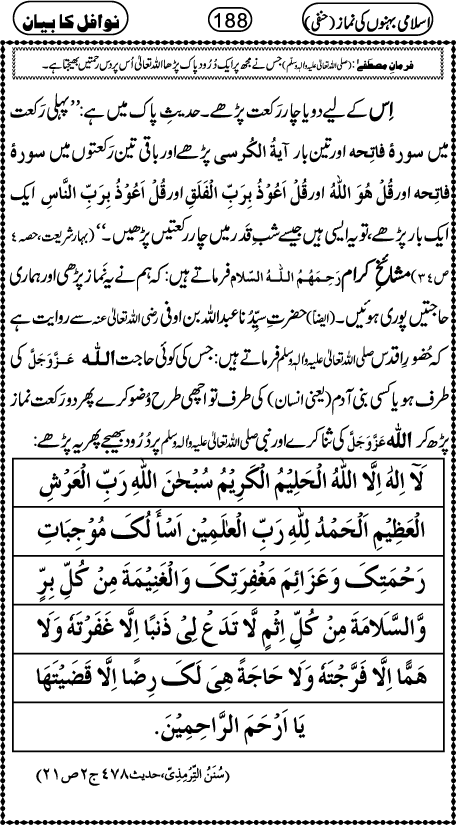 اسلامی بہنوں کی نماز (حنفی) 188 نوافل کا بیان
فرمانِ مصطفےٰ: (صلی اللہ تعالیٰ علیہ والہ وسلم) جس نے مجھ پر ایک دُرُود پاک پڑھا اللہ تعالیٰ اُس پر دس رحمتیں بھیجتا ہے۔
اِس کے لیے دو یا چار رکعت پڑھے۔ حدیثِ پاک میں ہے: ’’پہلی رَکعت
میں سورۂ فاتحہ اور تین بار آیۃُ الکُرسی پڑھے اور باقی تین رَکعتوں میں سورۂ
فاتحہ اور قُلْ ھُوَ اللّٰہُ اور قُلْ اَعُوْذُ بِرَبِّ الْفَلَقِ اور قُلْ اَعُوْذُ بِرَبِّ النَّاسِ ایک
ایک بار پڑھے، تو یہ ایسی ہیں جیسے شبِ قَدر میں چار رکعتیں پڑھیں۔‘‘ (بہارِ شریعت، حصہ ٤
ص٣٤) مشائخِ کرام رَحِمَہُمُ اللّٰہُ السَّلام فرماتے ہیں: کہ ہم نے یہ نماز پڑھی اور ہماری
حاجتیں پوری ہوئیں۔ (ایضاً) حضرتِ سیِّدُنا عبداللہ بن اوفٰی رضی اللہ تعالیٰ عنہ سے روایت ہے
کہ حُضُورِ اقدس صلی اللہ تعالیٰ علیہ والہ وسلم فرماتے ہیں: جس کی کوئی حاجت اللّٰہ عَزَّوَجَلَّ کی
طرف ہو یا کسی بنی آدم (یعنی انسان) کی طرف تو اچھی طرح وُضو کرے پھر دو رکعت نماز
پڑھ کر اللّٰہ عَزَّوَجَلَّ کی ثنا کرے اور نبی صلی اللہ تعالیٰ علیہ والہ وسلم پر دُرُود بھیجے پھر یہ پڑھے:
لَآ اِلٰہَ اِلَّا اللّٰہُ الْحَلِیْمُ الْکَرِیْمُ سُبْحٰنَ اللّٰہِ رَبِّ الْعَرْشِ
الْعَظِیْمِ اَلْحَمْدُ لِلّٰہِ رَبِّ الْعٰلَمِیْنَ اَسْأَ لُکَ مُوْجِبَاتِ
رَحْمَتِکَ وَعَزَائِمَ مَغْفِرَتِکَ وَالْغَنِیْمَۃَ مِنْ کُلِّ بِرٍّ
وَّالسَّلَامَۃَ مِنْ کُلِّ اِثْمٍ لَّا تَدَ عْ لِیْ ذَنْبًا اِلَّا غَفَرْتَہٗ وَلَا
ھَمًّا اِلَّا فَرَّجْتَہٗ وَلَا حَاجَۃً ھِیَ لَکَ رِضًا اِلَّا قَضَیْتَھَا
یَا اَرْحَمَ الرَّاحِمِیْنَ.
(سُنَنُ التِّرْمِذِیّ، حدیث ٤٧٨ ج٢ ص ٢١)